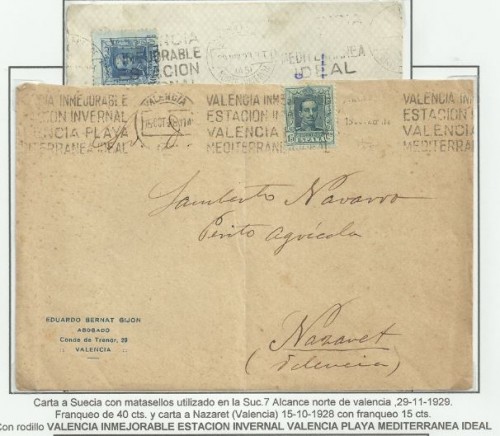 VALENCIA
INMEJORABLE
ESTACION
INVERNAL
MEDITERRANEA
IDEAL
VALENCIA INMEJORABLE
ESTACION INVERNAL
VALENCIA PLAYA
MEDITERRANEA IDEAL
VALENCIA
VALENCIA INM
ESTACION IN
VALENCIA
MEDITERRANE
Lamberto Navarro
Perito Agrícola
Nazaret
(Valencia)
EDUARDO BERNAT GIJON
ABOGADO
Conde de Trenor, 29
:: VALENCIA ::
Carta a Suecia con matasellos utilizado en la Suc.7 Alcance norte de valencia ,29-11-1929.
Franqueo de 40 cts. y carta a Nazaret (Valencia) 15-10-1928 con franqueo 15 cts.
Con rodillo VALENCIA INMEJORABLE ESTACION INVERNAL VALENCIA PLAYA MEDITERRANEA IDEAL